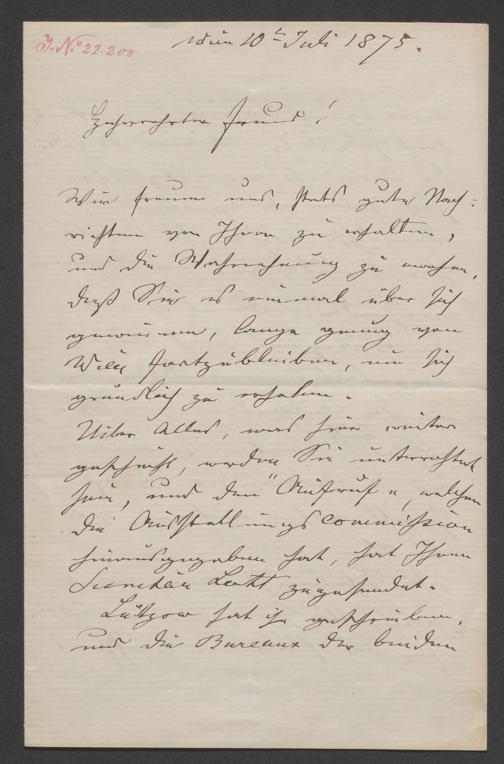 J. No 22.200
Wien 10t Juli 1875.
Hochverehrter Freund!
Wir freuen uns, stets gute Nach=
richten von Ihnen zu erhalten,
und die Wahrnehmung zu machen,
daß Sie es einmal über sich
gewinnen, lange genug von
Wien fortzubleiben, um sich
gründlich zu erholen.
Über Alles, was hier weiter
geschieht, werden Sie unterrichtet
sein, und den "Aufruf", welchen
die Ausstellungscommission
hinausgegeben hat, hat Ihnen
Secretär Lott zugesendet.
Lützow hat ihn geschrieben,
und die Bureaux der beiden